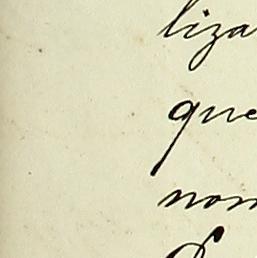 liza
que
nom